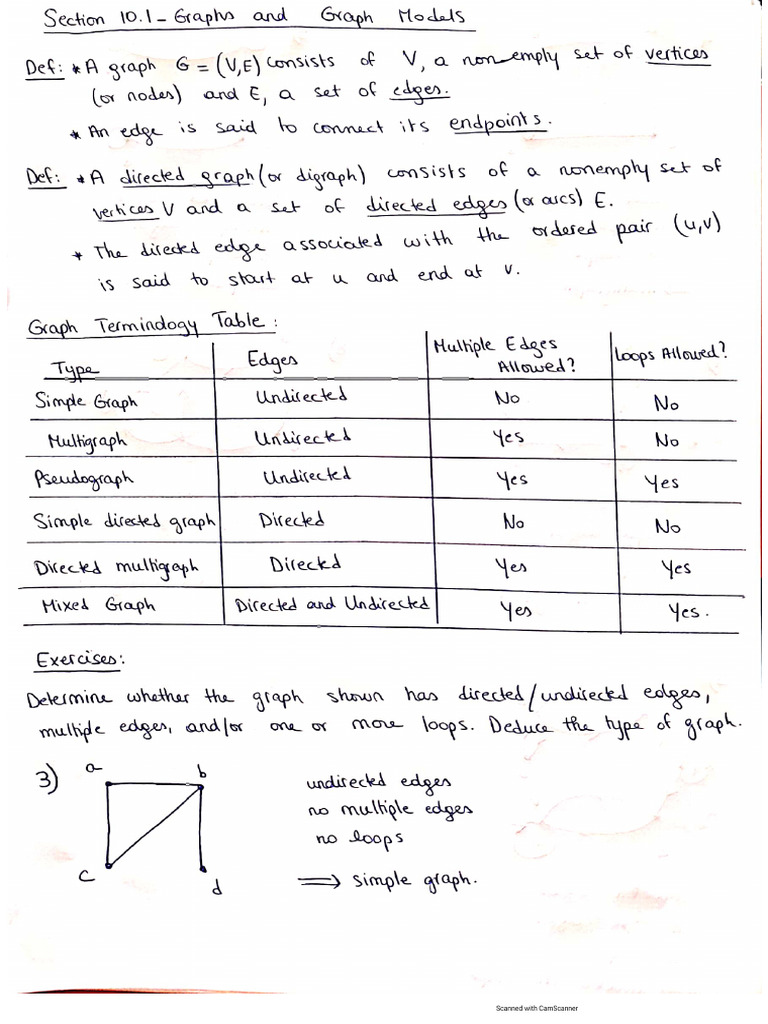 Section 10.1 - Graphs and Graph Models
Def: * A graph G = (V,E) consists of V, a nonempty set of vertices
(or nodes) and E, a set of edges.
* An edge is said to connect its endpoints.
Def: * A directed graph (or digraph) consists of a nonempty set of
vertices V and a set of directed edges (or arcs) E.
* The directed edge associated with the ordered pair (u,v)
is said to start at u and end at v.
Graph Terminology Table :
Type Edges Multiple Edges Allowed? Loops Allowed?
Simple Graph Undirected No No
Multigraph Undirected Yes No
Pseudograph Undirected Yes Yes
Simple directed graph Directed No No
Directed multigraph Directed Yes Yes
Mixed Graph Directed and Undirected Yes Yes.
Exercises:
Determine whether the graph shown has directed/undirected edges,
multiple edges, and/or one or more loops. Deduce the type of graph.
3) a b undirected edges
no multiple edges
no loops
c d ⟹ simple graph.
Scanned with CamScanner